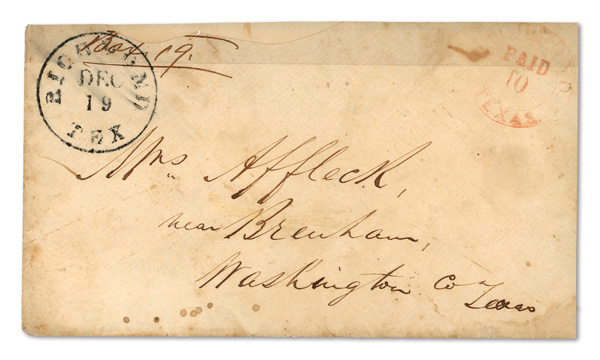 Box 19.
RICHMOND
DEC
19
TEX
PAID
TO
TEXAS
Mrs Affleck,
near Brenham,
Washington Co
Texas